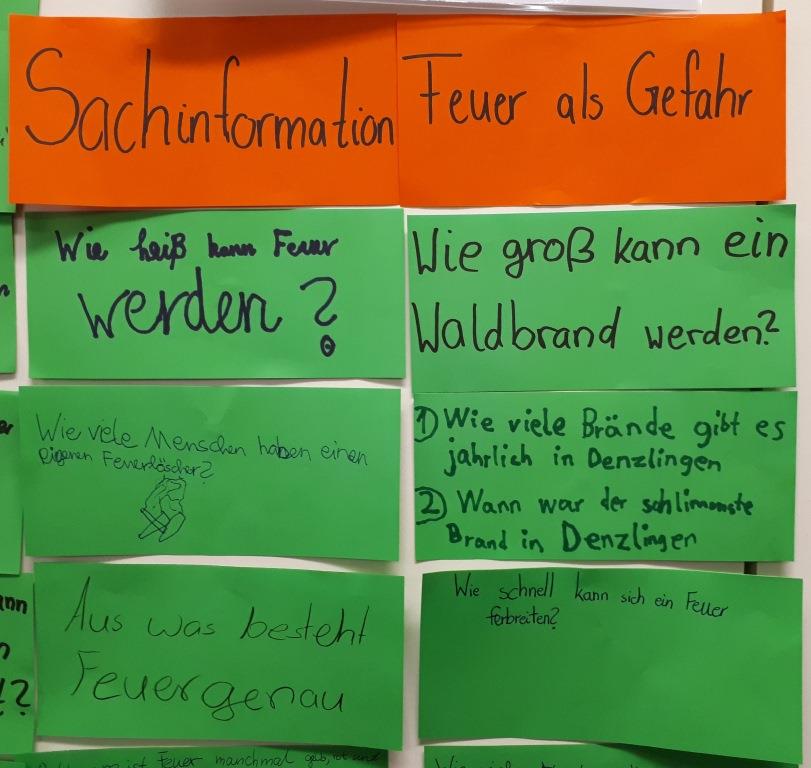 Sachinformation
Wie heiß kann Feuer
werden?
Wie viele Menschen haben einen
eigenen Feuerlöscher?
Aus was besteht
Feuer genau
ist Feuer manchmal gelb, rot und
Feuer als Gefahr
Wie groß kann ein
Waldbrand werden?
1) Wie viele Brände gibt es
jahrlich in Denzlingen
2) Wann war der schlimmste
Brand in Denzlingen
Wie schnell kann sich ein Feuer
ferbreiten?